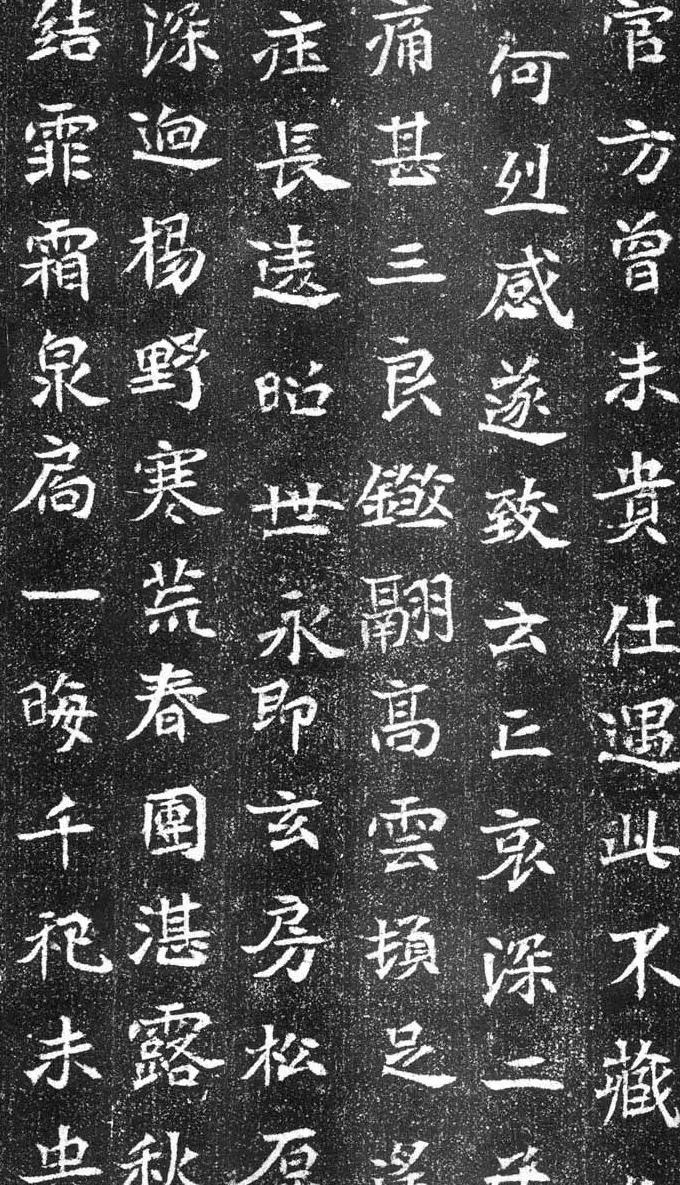 官方曾未貴仕遇此不藏
何烈感遂致玄正哀深二
痛甚三良鐓翮高雲頓足
長逺昭世永即玄房松原
深迥楊野寒荒春團湛露秋
結霏霜泉扃一晦千祀未虫